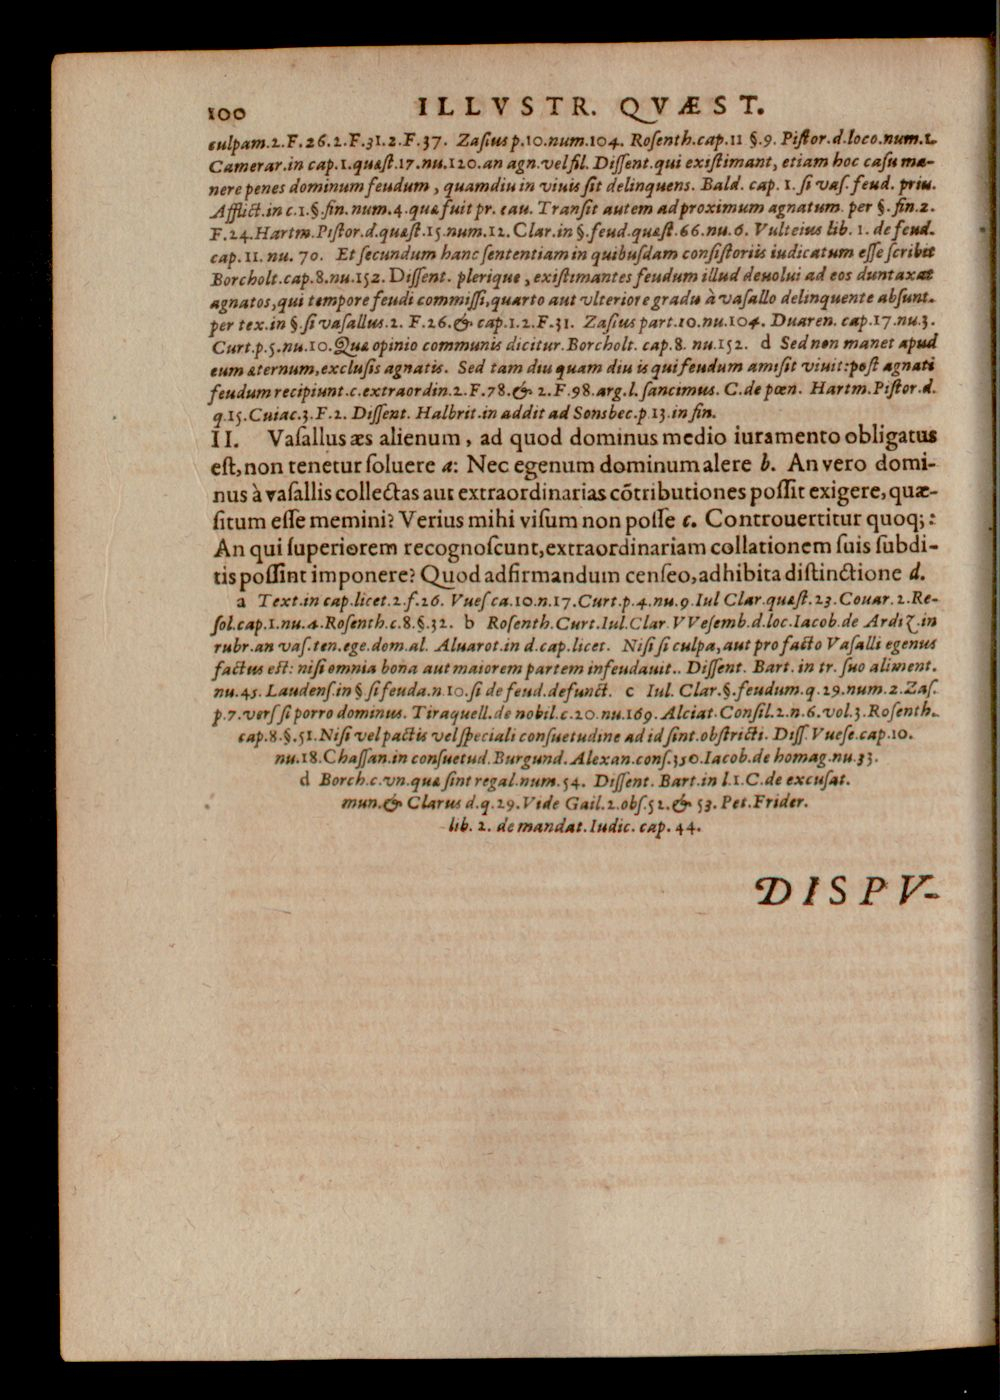 100 ILLVSTR. QVÆST.
culpam.2.F.26.2.F.31.2.F.37. Zaſius p.10.num.104. Roſenth.cap.11 §.9. Piſtor.d.loco.num.1.
Camerar.in cap.1.quæſt.17.nu.120.an agn.vel fil. Diſſent.qui exiſtimant, etiam hoc caſu ma-
nere penes dominum feudum, quamdiu in viuis ſit delinquens. Bald. cap. 1. ſi vaſ. feud. priu.
Afflict.in c.1.§.fin. num.4.quæ fuit pr. cau. Tranſit autem ad proximum agnatum. per §. fin.2.
F.24.Hartm.Piſtor.d.quæſt.15.num.12. Clar.in §.feud.quæſt.66.nu.6. Vulteius lib. 1. de feud.
cap. 11. nu. 70. Et ſecundum hanc ſententiam in quibuſdam conſiſtoriis iudicatum eſſe ſcribit
Borcholt.cap.8.nu.152. Diſſent. plerique, exiſtimantes feudum illud deuolui ad eos duntaxat
agnatos,qui tempore feudi commiſſi,quarto aut vlteriore gradu à vaſallo delinquente abſunt.
per tex.in §.ſi vaſallus.2. F.26.& cap.1.2.F.31. Zaſius part.10.nu.104. Duaren. cap.17.nu.3.
Curt.p.5.nu.10.Quæ opinio communis dicitur.Borcholt. cap.8. nu.152. d Sed non manet apud
eum æternum,excluſis agnatis. Sed tam diu quam diu is qui feudum amiſit viuit:poſt agnati
feudum recipiunt.c.extraordin.2.F.78.& 2.F.98.arg.l.ſancimus. C.de pœn. Hartm.Piſtor.d.
q.15.Cuiac.3.F.2. Diſſent. Halbrit.in addit ad Sonsbec.p.13.in fin.
II. Vaſallus æs alienum, ad quod dominus medio iuramento obligatus
eſt,non tenetur ſoluere a: Nec egenum dominum alere b. An vero domi-
nus à vaſallis collectas aut extraordinarias cõtributiones poſſit exigere,quæ-
ſitum eſſe memini? Verius mihi viſum non poſſe c. Controuertitur quoq;:
An qui ſuperiorem recognoſcunt,extraordinariam collationem ſuis ſubdi-
tis poſſint imponere? Quod adfirmandum cenſeo,adhibita diſtinctione d.
a Text.in cap.licet.2.f.26. Vueſ ca.10.n.17.Curt.p.4.nu.9.Iul Clar.quæſt.23.Couar.2.Re-
ſol.cap.1.nu.4.Roſenth.c.8.§.32. b Roſenth.Curt.Iul.Clar.VVeſemb.d.loc.Iacob.de Ardiz.in
rubr.an vaſ.ten.ege.dom.al. Aluarot.in d.cap.licet. Niſi ſi culpa,aut pro facto Vaſalli egenus
factus eſt: niſi omnia bona aut maiorem partem infeudauit.. Diſſent. Bart. in tr. ſuo aliment.
nu.45. Laudenſ.in §.ſi feuda.n.10.ſi de feud.defunct. c Iul. Clar.§.feudum.q.29.num.2.Zaſ.
p.7.verſ ſi porro dominus. Tiraquell.de nobil.c.20.nu.169.Alciat.Conſil.2.n.6.vol.3.Roſenth.
cap.8.§.51.Niſi vel pactis vel ſpeciali conſuetudine ad id ſint.obſtricti. Diſſ.Vueſe.cap.10.
nu.18.Chaſſan.in conſuetud.Burgund.Alexan.conſ.350.Iacob.de homag.nu.33.
d Borch.c.vn.quæ ſint regal.num.54. Diſſent. Bart.in l.1.C.de excuſat.
mun.& Clarus d.q.29.Vide Gail.2.obſ.52.& 53. Pet.Frider.
lib. 2. de mandat.Iudic. cap. 44.
DISPV-